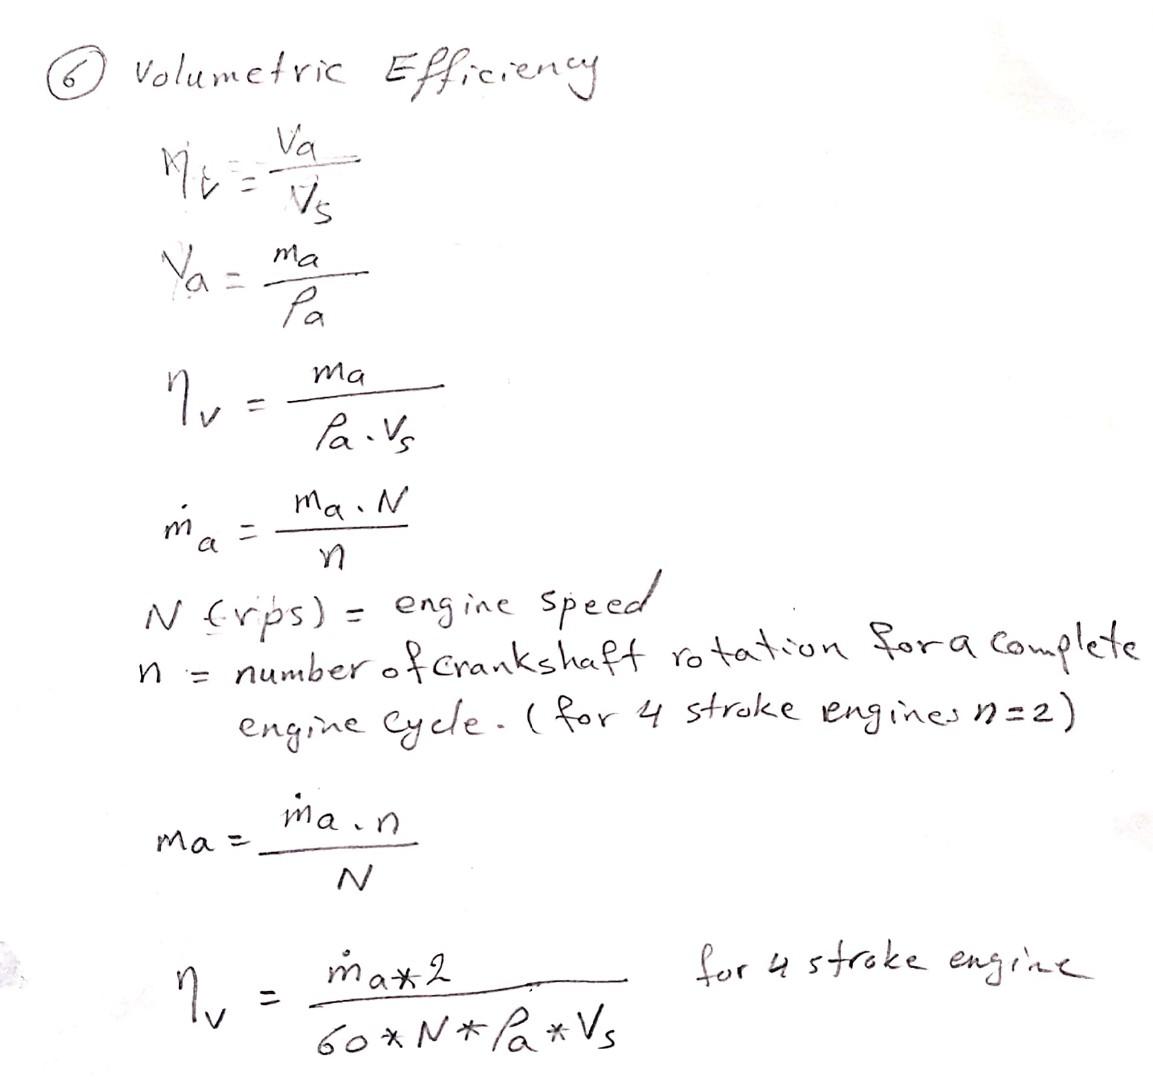 ⑥ Volumetric Efficiency
η_v = Va / Vs
Va = ma / ρa
η_v = ma / ρa . Vs
ṁa = ma . N / n
N (rps) = engine speed
n = number of crankshaft rotation for a complete
engine cycle. (for 4 stroke engines n=2)
ma = ṁa . n / N
η_v = ṁa * 2 / 60 * N * ρa * Vs for 4 stroke engine